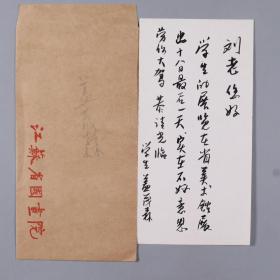 刘老您好
学生的展览在省美术馆展
出十八日最后一天实在不好意思
劳您大驾 恭请光临
学生
江苏省国画院